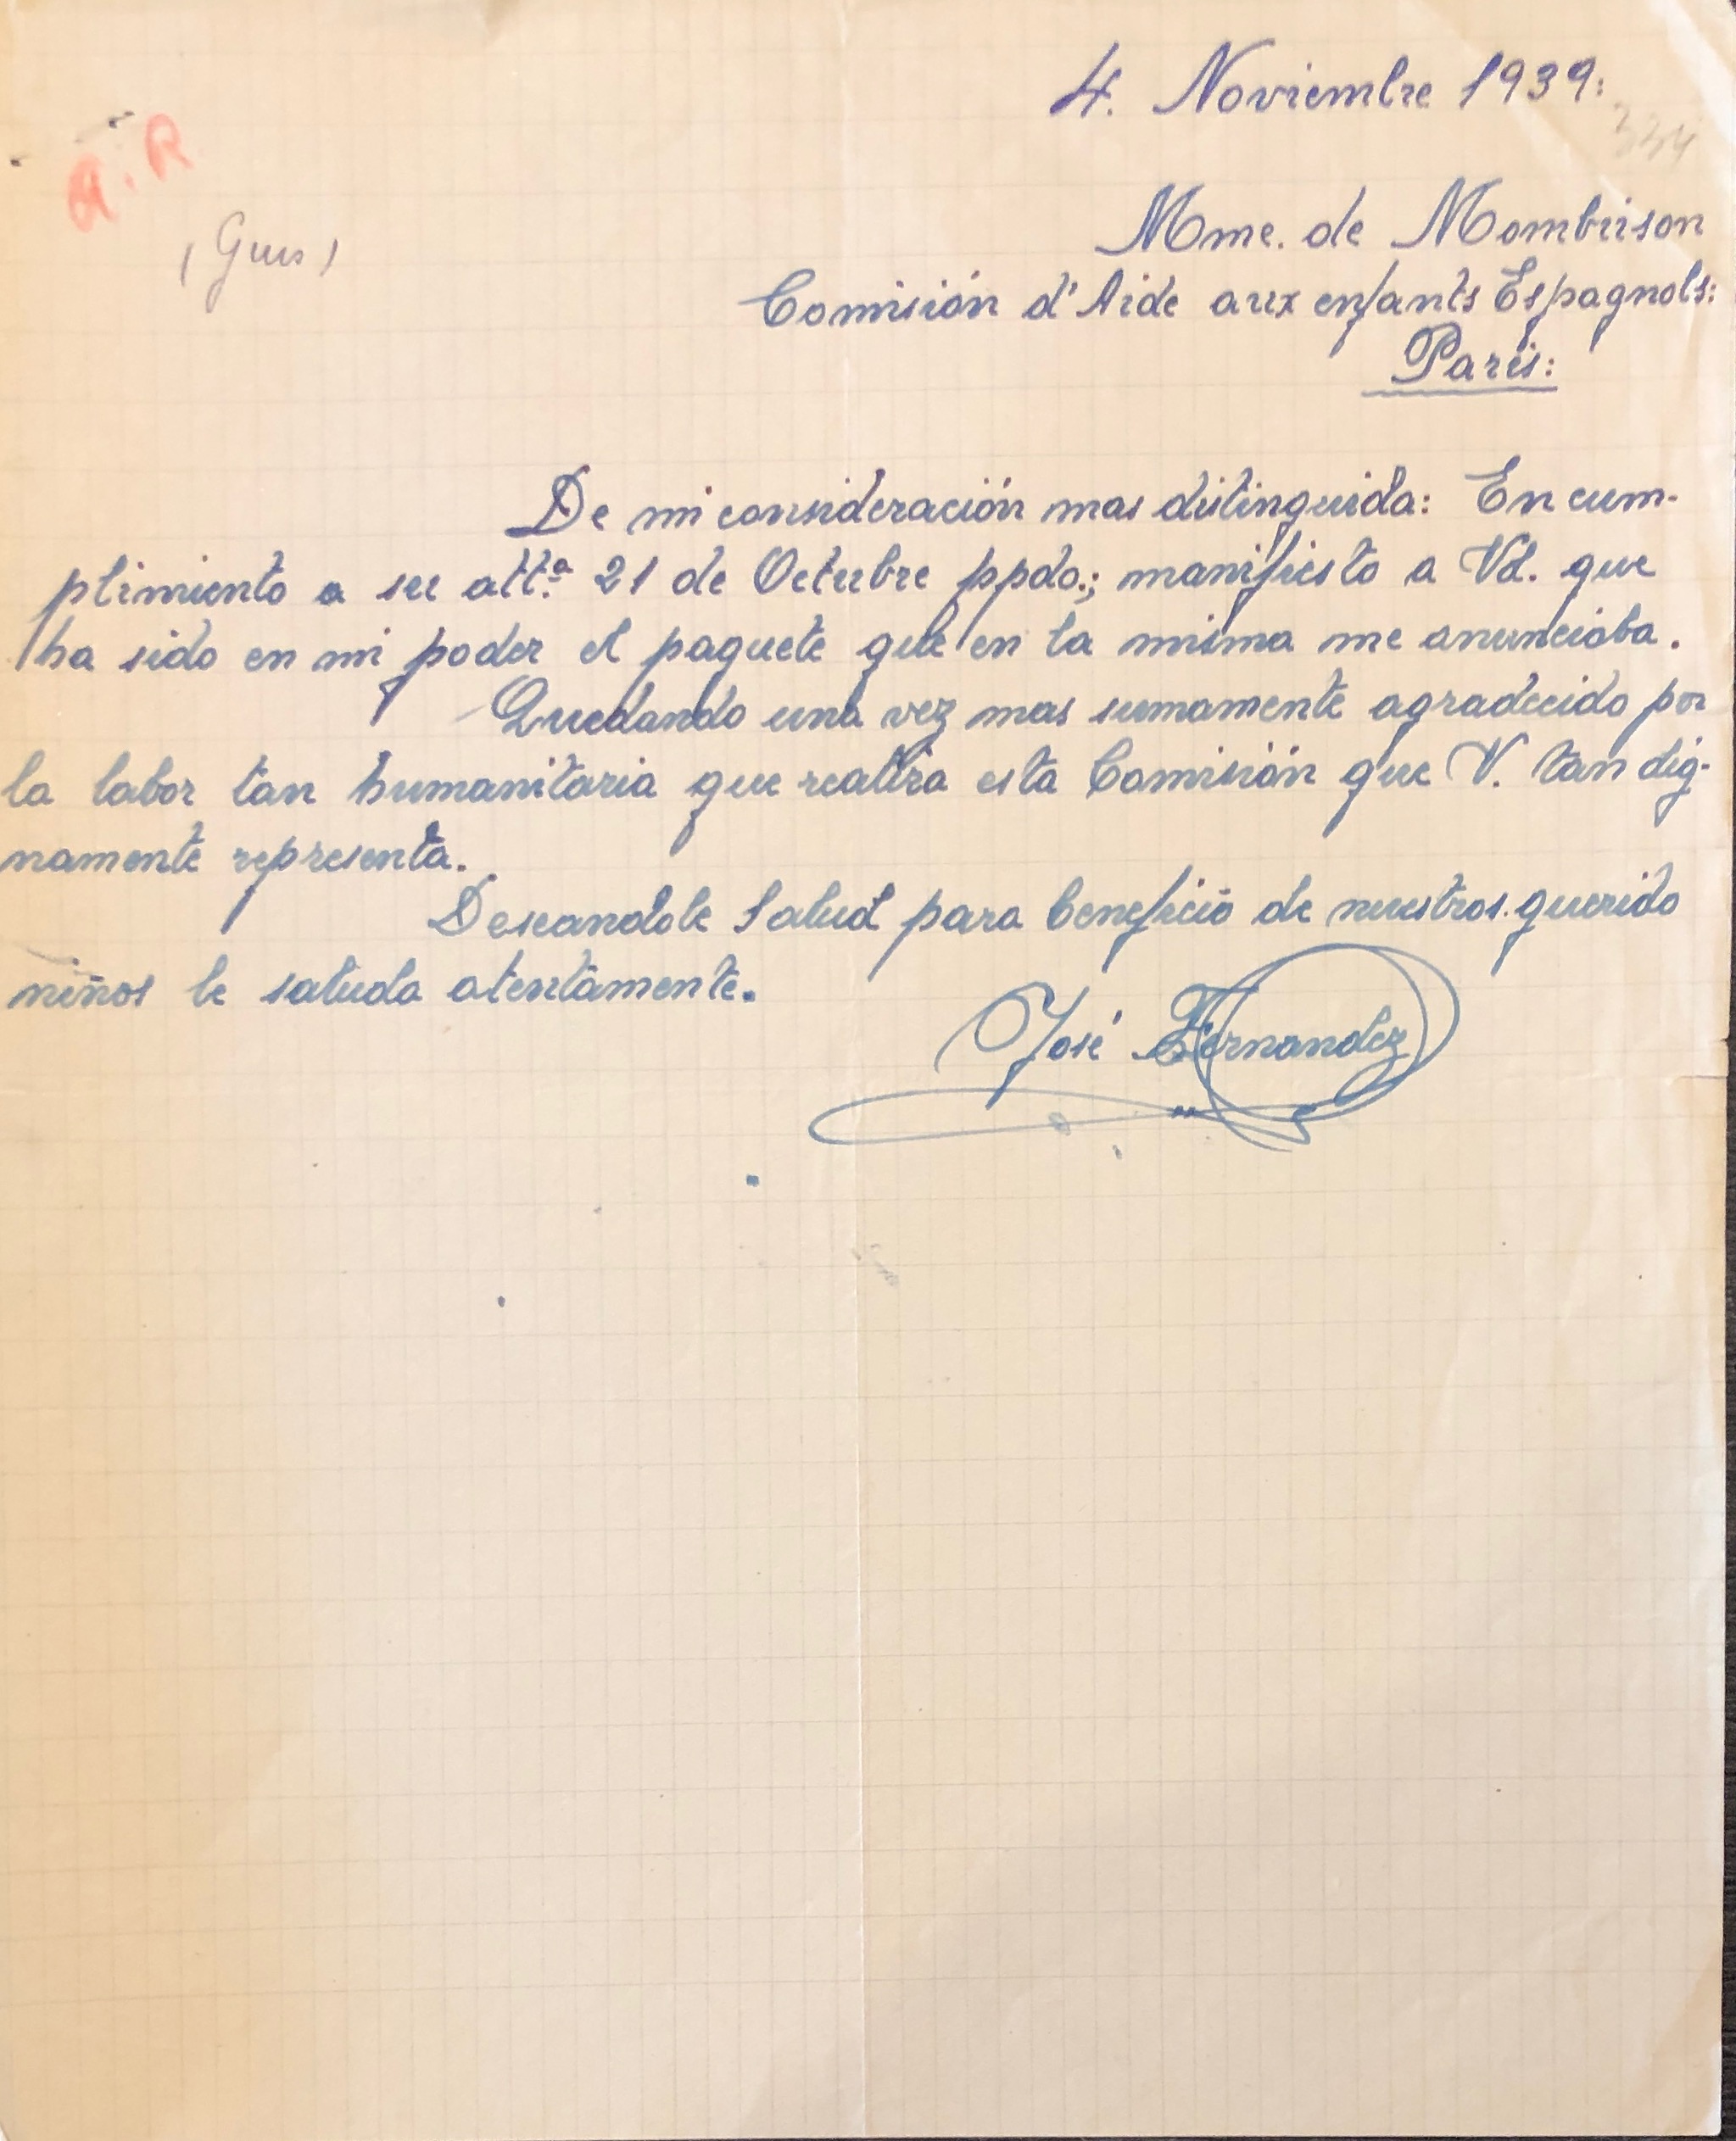 4. Noviembre 1939:
334
A.R
(Gurs)
Mme. de Mombrison
Comisión d'Aide aux enfants Espagnols:
Paris:
De mi consideración mas distinguida: En cum-
plimiento a su att.ª 21 de Octubre ppdo.; manifiesto a Vd. que
ha sido en mi poder el paquete que en la misma me anunciaba.
Quedando una vez mas sumamente agradecido por
la labor tan humanitaria que realiza esta Comisión que V. tan dig-
namente representa.
Deseandole Salud para beneficio de nuestros querido
niños le saluda atentamente.
José Fernandez